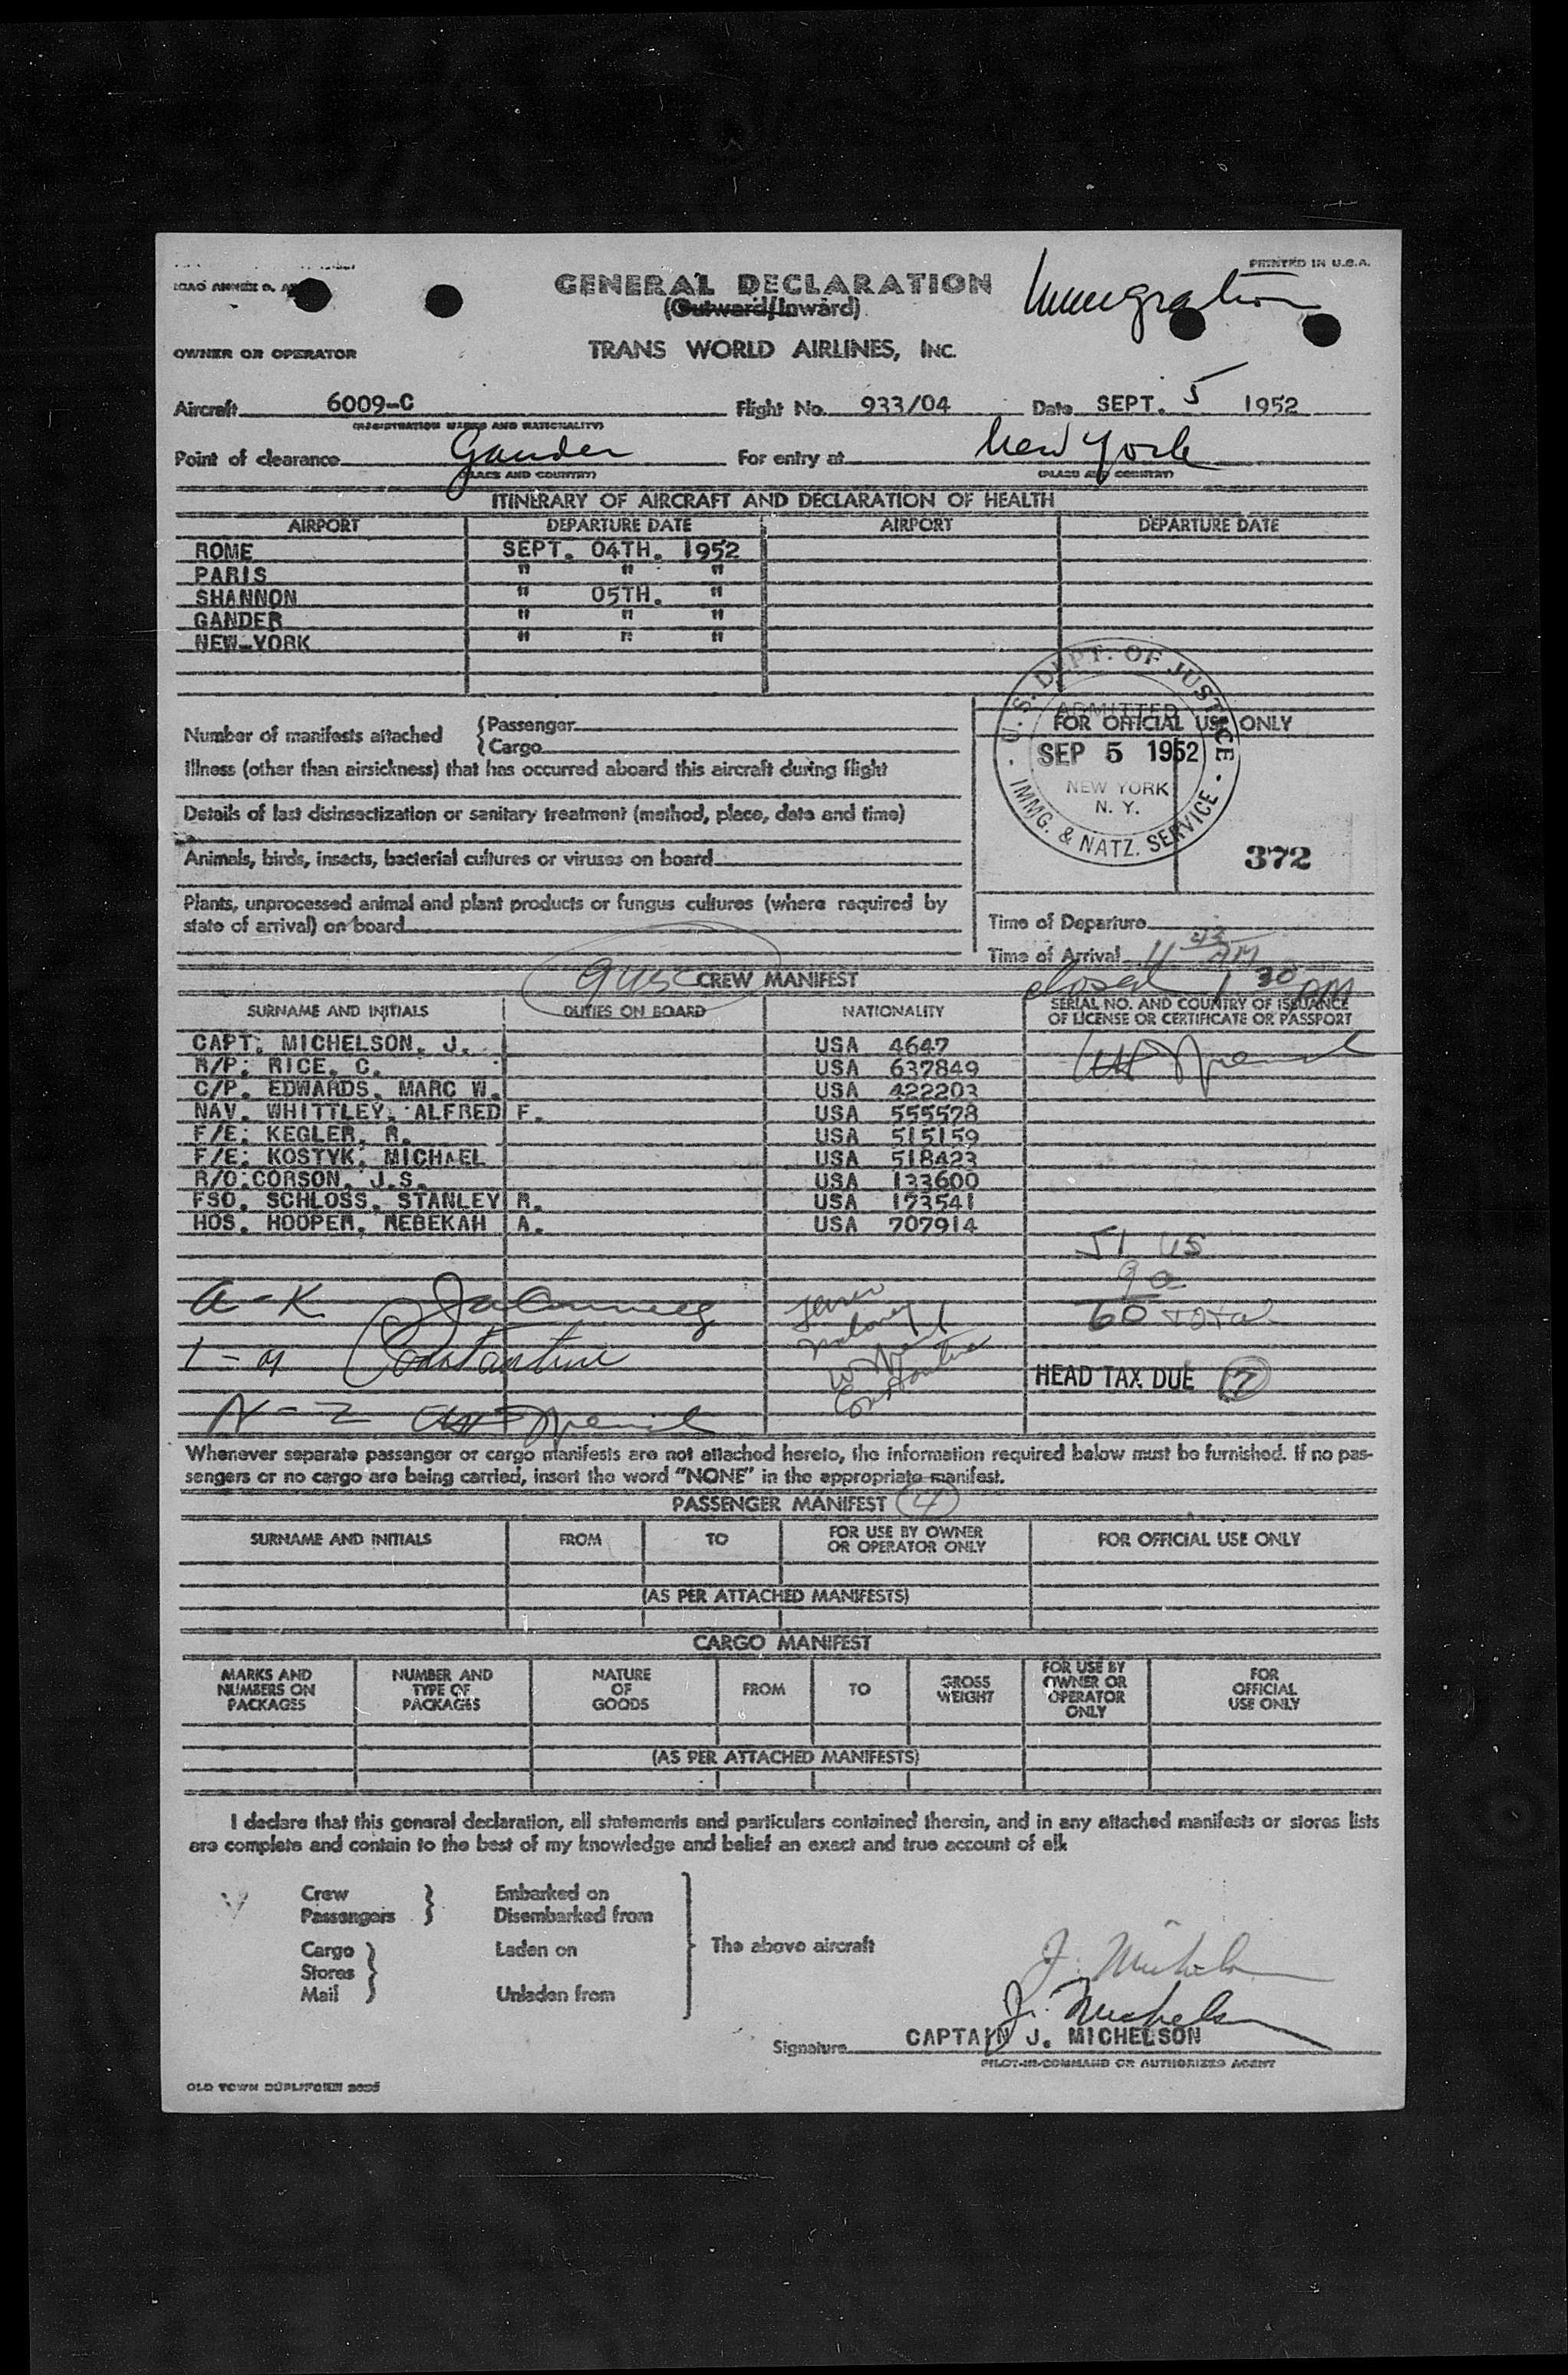 ICAO ANNEX 9. A
GENERAL DECLARATION
(Outward/Inward)
Immigration
PRINTED IN U.S.A.
OWNER OR OPERATOR
TRANS WORLD AIRLINES, INC.
Aircraft 6009-C Flight No. 933/04 Date SEPT. 5 1952
(REGISTRATION MARKS AND NATIONALITY)
Point of clearance Gander For entry at New York
(PLACE AND COUNTRY) (PLACE AND COUNTRY)
ITINERARY OF AIRCRAFT AND DECLARATION OF HEALTH
AIRPORT DEPARTURE DATE AIRPORT DEPARTURE DATE
ROME SEPT. 04TH. 1952
PARIS " " "
SHANNON " 05TH. "
GANDER " " "
NEW-YORK " " "
Number of manifests attached {Passenger
{Cargo
Illness (other than airsickness) that has occurred aboard this aircraft during flight
Details of last disinsectization or sanitary treatment (method, place, date and time)
Animals, birds, insects, bacterial cultures or viruses on board
Plants, unprocessed animal and plant products or fungus cultures (where required by
state of arrival) on board
FOR OFFICIAL USE ONLY
U.S. DEPT. OF JUSTICE
ADMITTED
SEP 5 1952
NEW YORK
N. Y.
IMMG. & NATZ. SERVICE
372
Time of Departure
Time of Arrival 11 43 AM
closed 1 30 PM
CREW MANIFEST
SURNAME AND INITIALS DUTIES ON BOARD NATIONALITY SERIAL NO. AND COUNTRY OF ISSUANCE
OF LICENSE OR CERTIFICATE OR PASSPORT
CAPT. MICHELSON, J. USA 4647
R/P: RICE, C. USA 637849
C/P. EDWARDS, MARC W. USA 422203
NAV. WHITTLEY, ALFRED F. USA 555578
F/E: KEGLER, R. USA 515159
F/E: KOSTYK, MICHAEL USA 518423
R/O:CORSON, J.S. USA 133600
FSO. SCHLOSS, STANLEY R. USA 173541
HOS. HOOPER, REBEKAH A. USA 707914
51 US
9 a
60 total
A-K
Constantine
N-Z
Constantine
HEAD TAX DUE 7
Whenever separate passenger or cargo manifests are not attached hereto, the information required below must be furnished. If no pas-
sengers or no cargo are being carried, insert the word "NONE" in the appropriate manifest.
PASSENGER MANIFEST 4
SURNAME AND INITIALS FROM TO FOR USE BY OWNER
OR OPERATOR ONLY FOR OFFICIAL USE ONLY
(AS PER ATTACHED MANIFESTS)
CARGO MANIFEST
MARKS AND
NUMBERS ON
PACKAGES
NUMBER AND
TYPE OF
PACKAGES
NATURE
OF
GOODS
FROM
TO
GROSS
WEIGHT
FOR USE BY
OWNER OR
OPERATOR
ONLY
FOR
OFFICIAL
USE ONLY
(AS PER ATTACHED MANIFESTS)
I declare that this general declaration, all statements and particulars contained therein, and in any attached manifests or stores lists
are complete and contain to the best of my knowledge and belief an exact and true account of all:
Crew
Passengers
Embarked on
Disembarked from
Cargo
Stores
Mail
Laden on
Unladen from
The above aircraft
J. Michelson
J. Michelson
Signature CAPTAIN J. MICHELSON
PILOT-IN-COMMAND OR AUTHORIZED AGENT
OLD TOWN DUPLIFORM